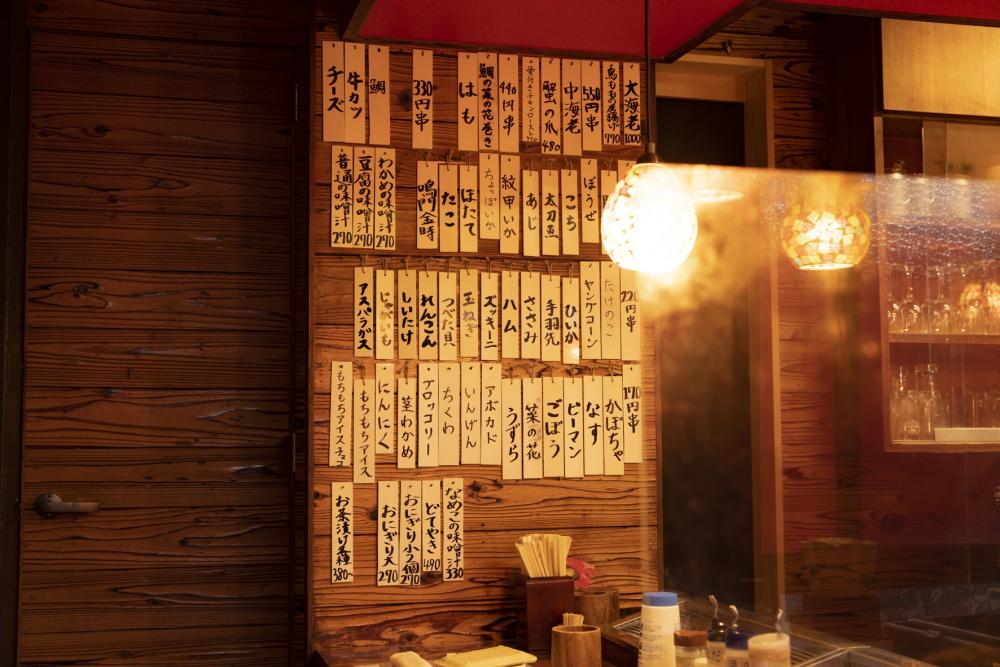 大海老 1000
鳥ももの唐揚げ 770
550円串
中海老
蟹の爪 480
骨付きチキンロースト 770
440円串
鯛の菜の花巻き
はも
330円串
鯛
牛カツ
チーズ
ぼうぜ
こち
太刀魚
あじ
紋甲いか
ちょっぽいか
ほたて
たこ
鳴門金時
わかめの味噌汁 290
豆腐の味噌汁 290
普通の味噌汁 290
220円串
たけのこ
ヤングコーン
ひいか
手羽先
ささみ
ハム
ズッキーニ
玉ねぎ
つべた貝
れんこん
しいたけ
じゃがいも
アスパラガス
170円串
かぼちゃ
なす
ピーマン
ごぼう
菜の花
うずら
アボカド
いんげん
ちくわ
ブロッコリー
茎わかめ
にんにく
もちもちアイス
もちもちアイスチョコ
なめこの味噌汁 330
どてやき 490
おにぎり小2個 290
おにぎり大 290
お茶漬け各種 380~